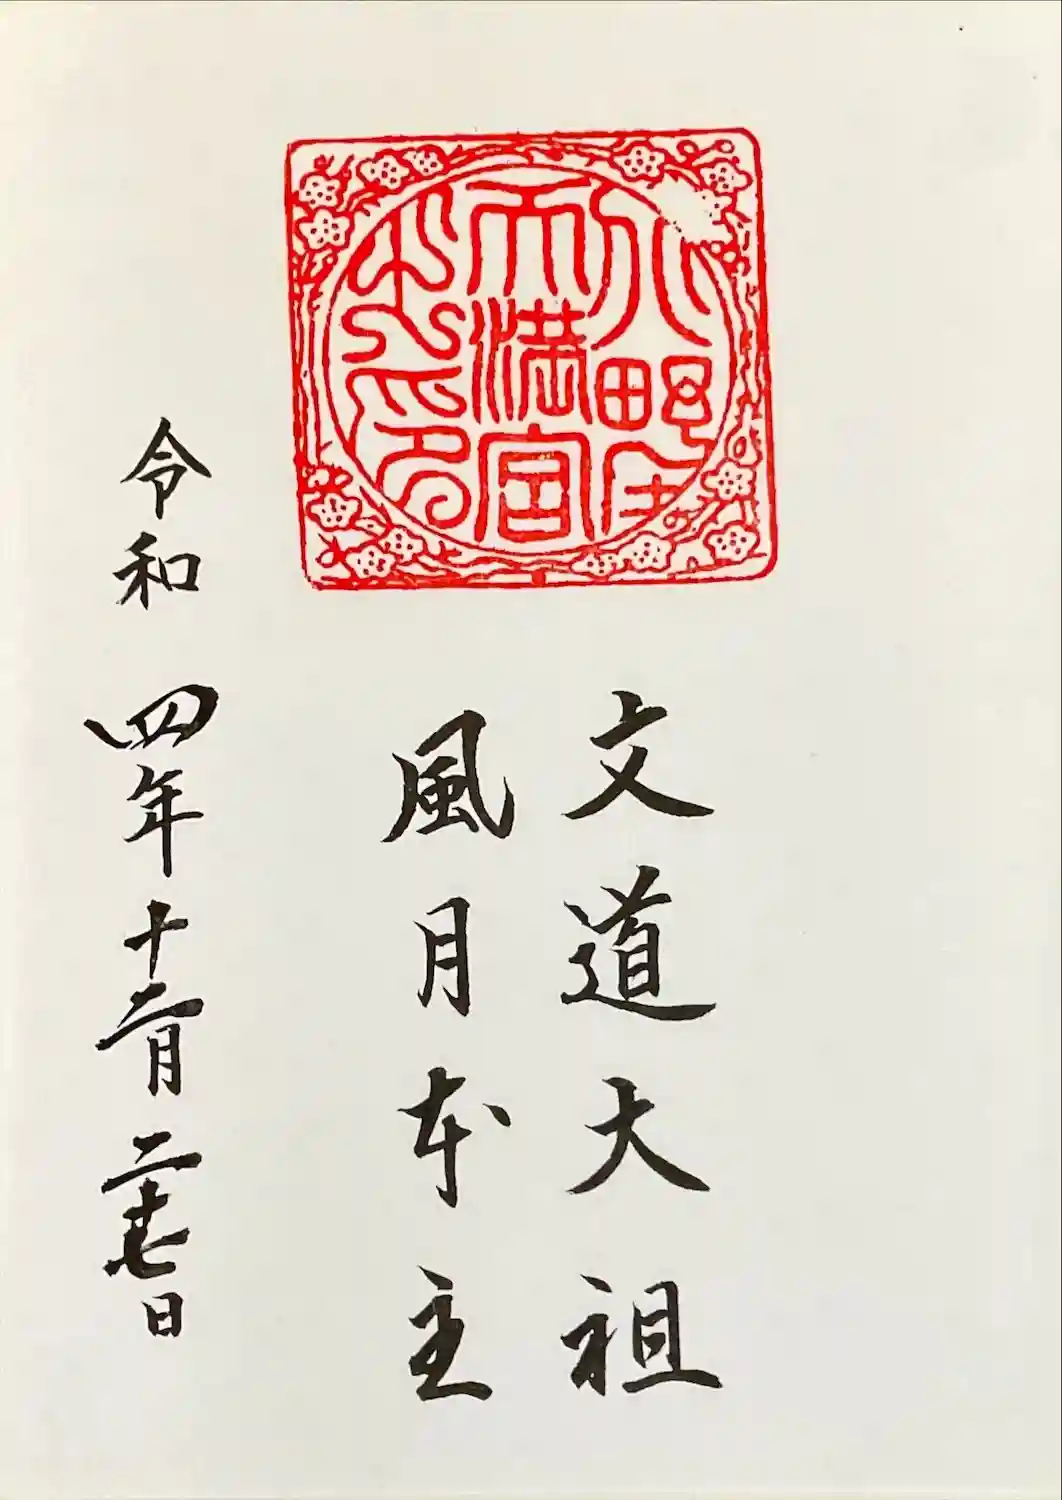 天満宮
文道大祖
風月本主
令和四年十二月二十七日